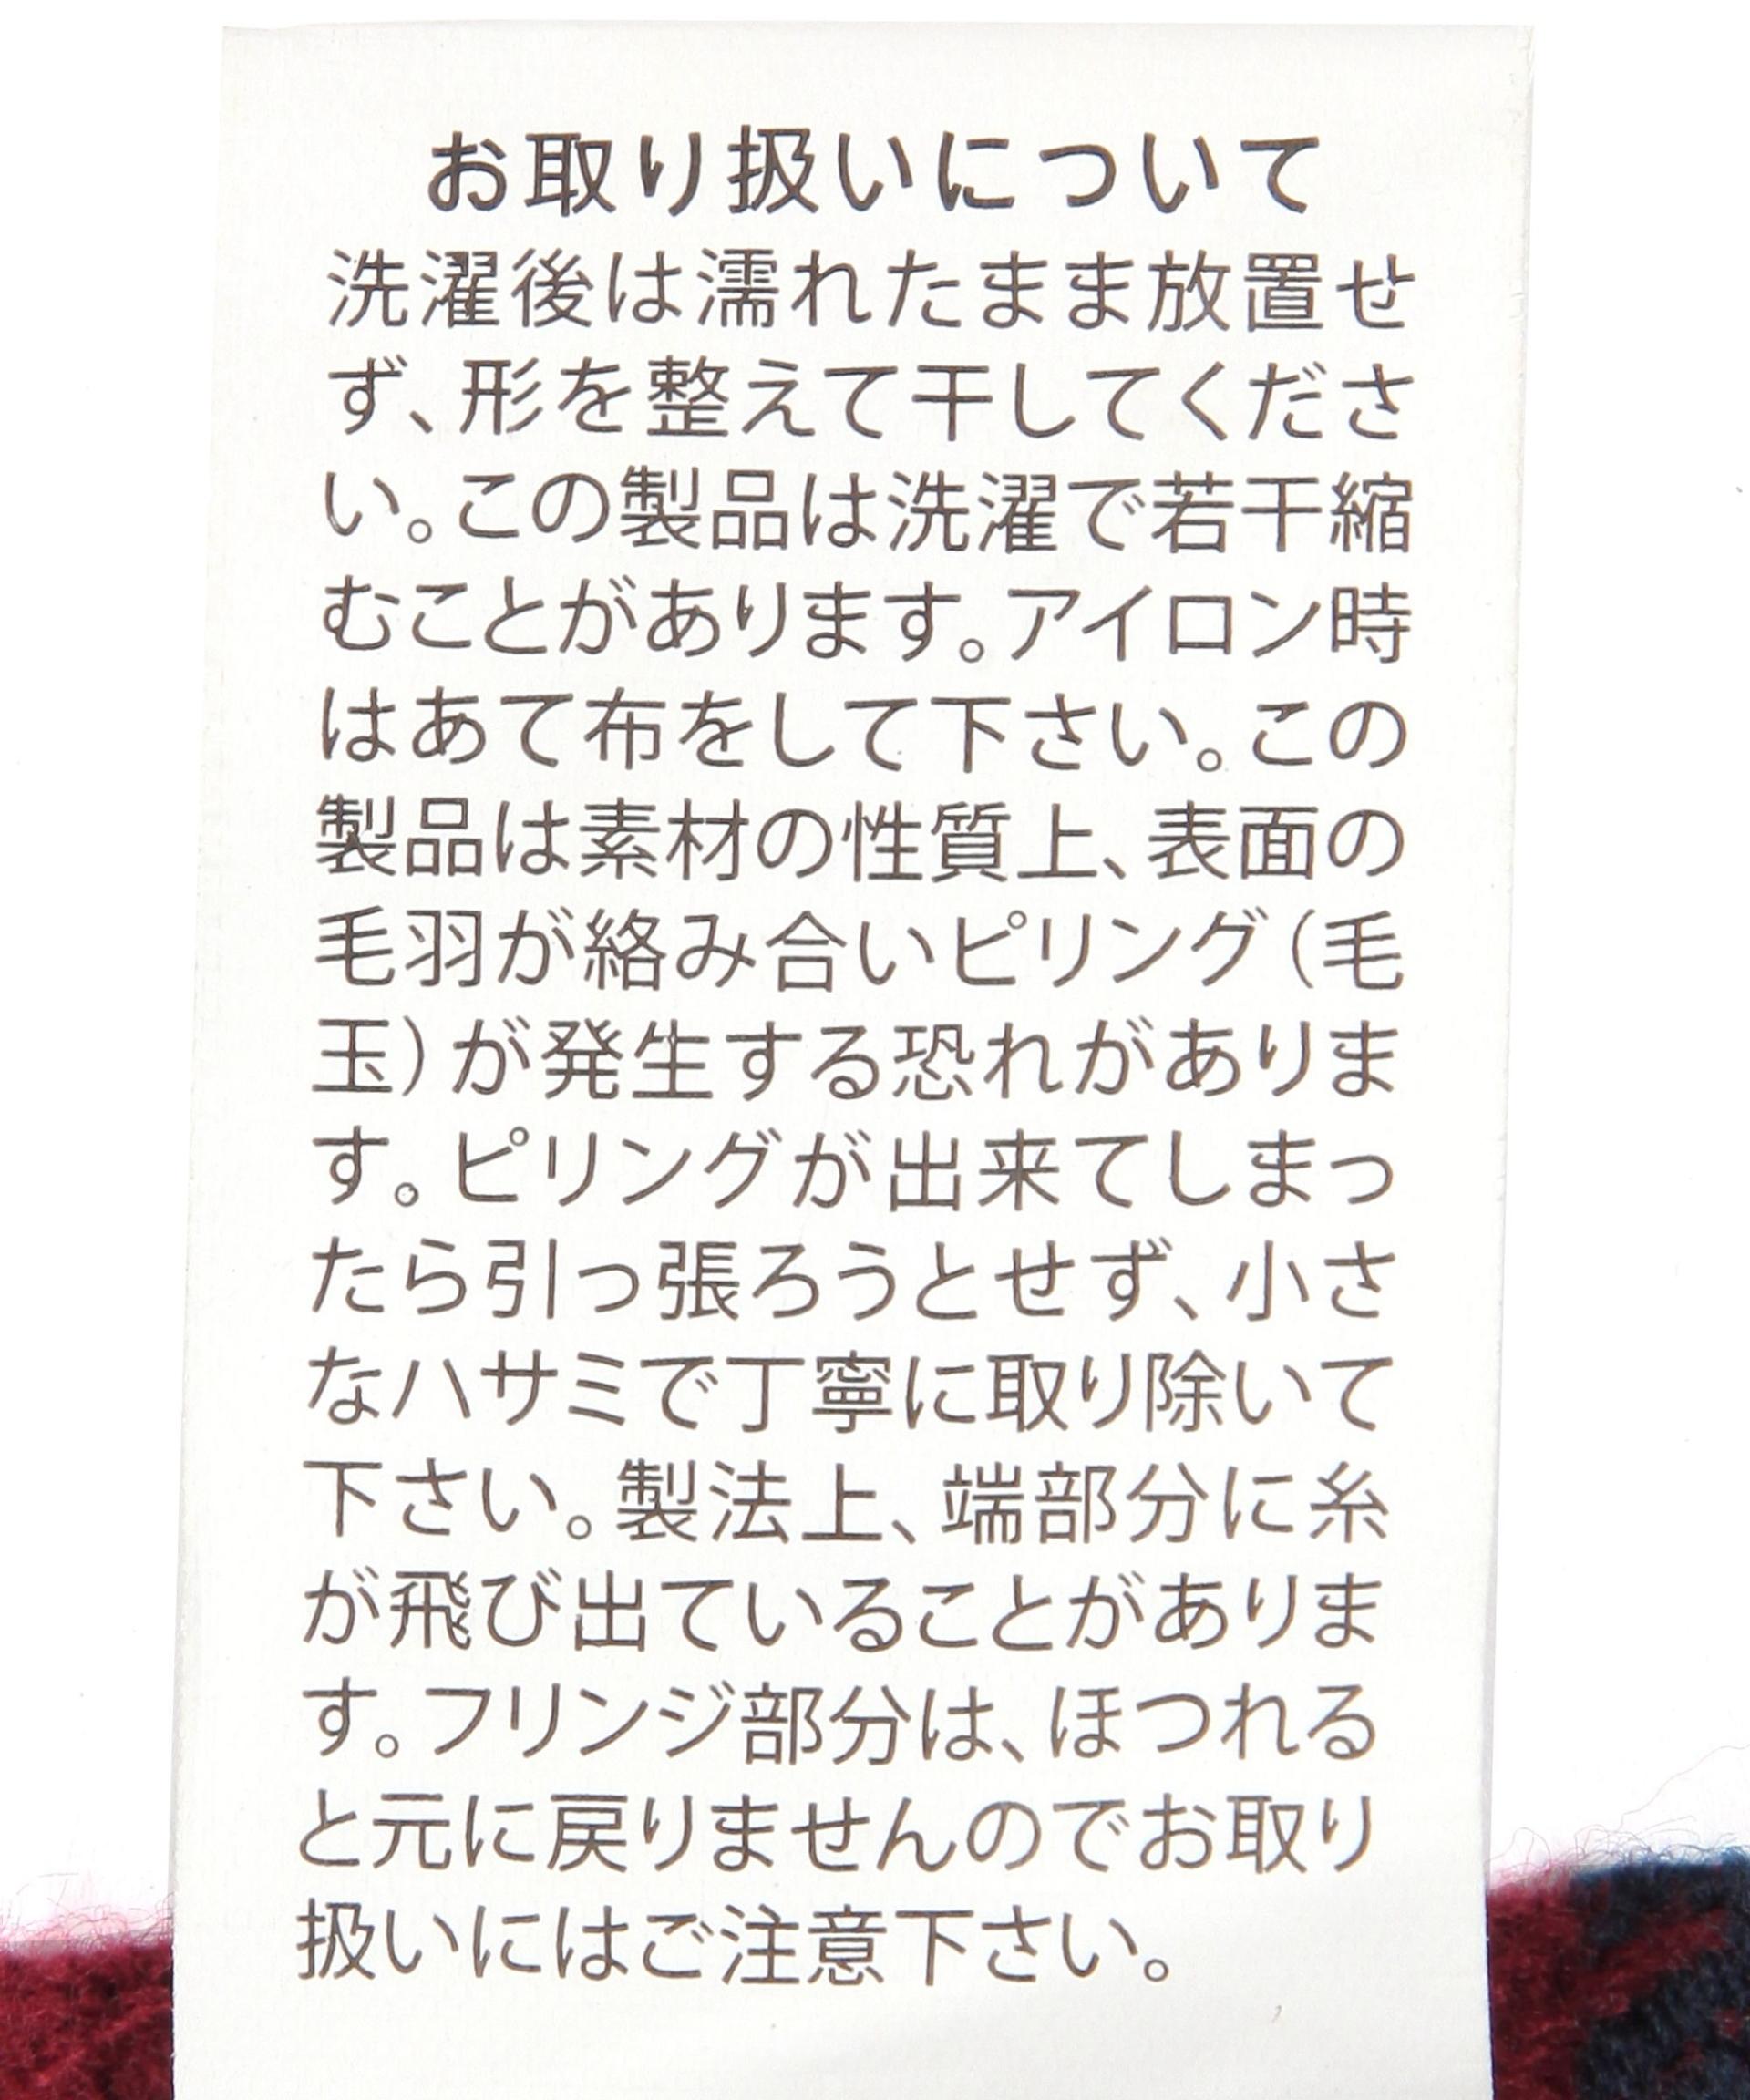 お取り扱いについて
洗濯後は濡れたまま放置せ
ず、形を整えて干してくださ
い。この製品は洗濯で若干縮
むことがあります。アイロン時
はあて布をして下さい。この
製品は素材の性質上、表面の
毛羽が絡み合いピリング（毛
玉）が発生する恐れがありま
す。ピリングが出来てしまっ
たら引っ張ろうとせず、小さ
なハサミで丁寧に取り除いて
下さい。製法上、端部分に糸
が飛び出ていることがありま
す。フリンジ部分は、ほつれる
と元に戻りませんのでお取り
扱いにはご注意下さい。